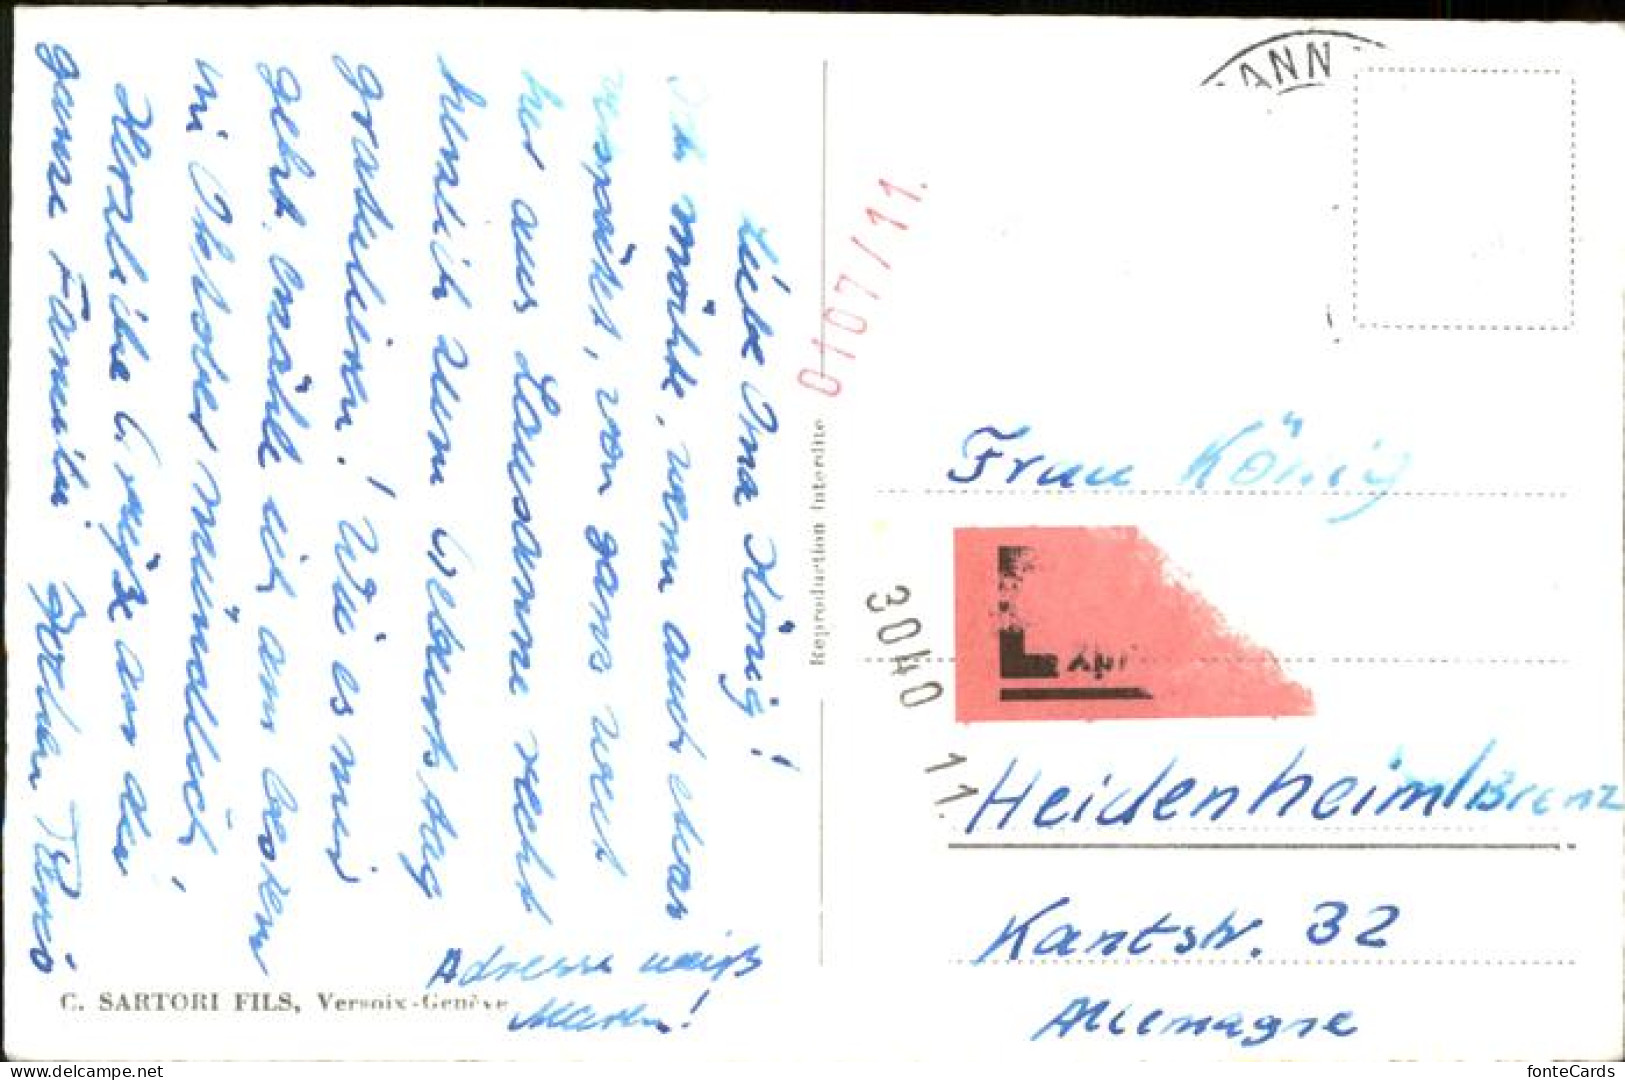 Liebe Oma König!
Ich möchte, wenn auch etwas
verspätet, von ganz weit
her aus Lausanne recht
herzlich zum Geburtstag
gratulieren! Wie es mir
geht erzähle ich am besten
im Oktober mündlich!
Herzliche Grüße an die
ganze Familie
Adresse weiß
C. SARTORI FILS, Versoix-Genève
Reproduction interdite
0107/11.
ANN
3040
11.
Frau König
Heidenheim/Brenz
Kantstr. 32
Allemagne
delcampe.net
fonteCards